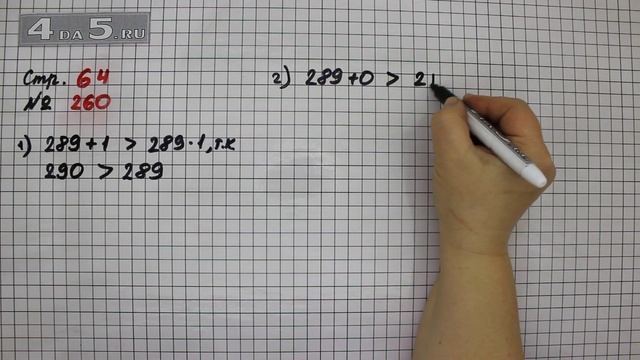 4 DA 5.RU
Стр. 64
№ 260
1) 289 + 1 > 289 · 1, т.к
290 > 289
2) 289 + 0 > 2